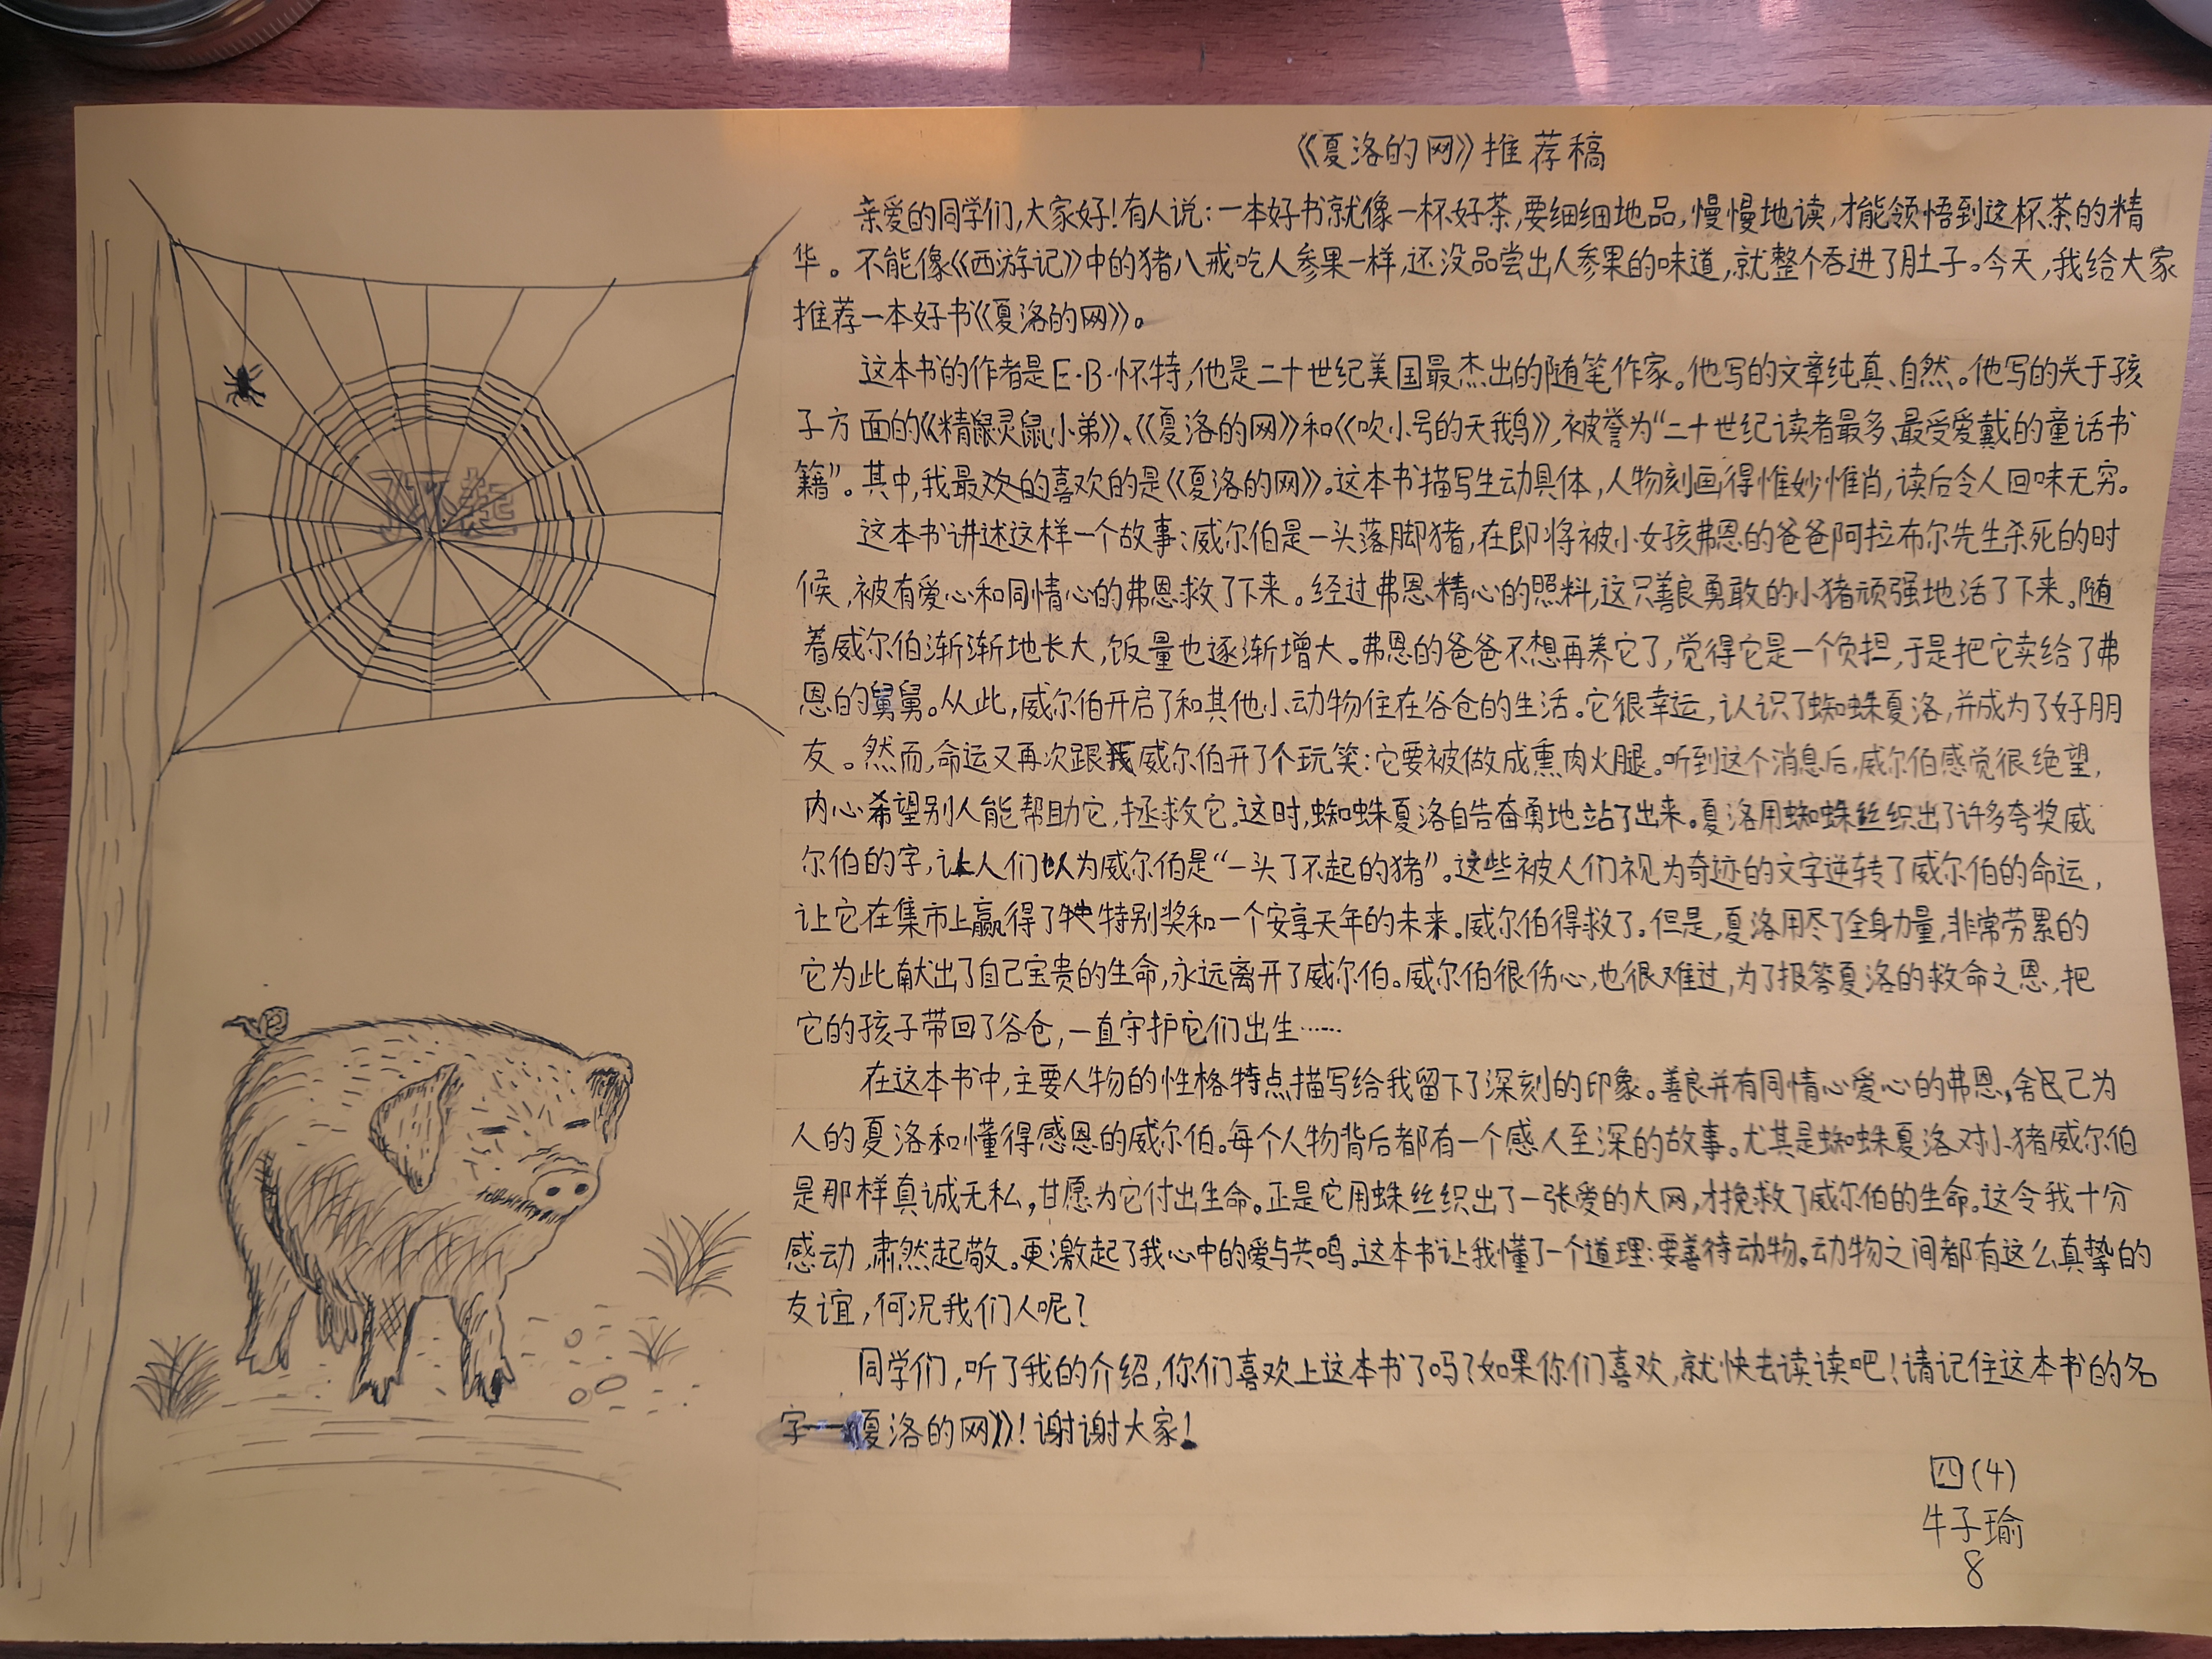 《夏洛的网》推荐稿
亲爱的同学们,大家好!有人说:一本好书就像一杯好茶,要细细地品,慢慢地读,才能领悟到这杯茶的精
华。不能像《西游记》中的猪八戒吃人参果一样,还没品尝出人参果的味道,就整个吞进了肚子。今天,我给大家
推荐一本好书《夏洛的网》。
这本书的作者是E·B·怀特,他是二十世纪美国最杰出的随笔作家。他写的文章纯真、自然。他写的关于孩
子方面的《精鼠灵鼠小弟》、《夏洛的网》和《吹小号的天鹅》,被誉为“二十世纪读者最多、最受爱戴的童话书
籍”。其中,我最欢的喜欢的是《夏洛的网》。这本书描写生动具体,人物刻画得惟妙惟肖,读后令人回味无穷。
这本书讲述这样一个故事:威尔伯是一头落脚猪,在即将被小女孩弗恩的爸爸阿拉布尔先生杀死的时
候,被有爱心和同情心的弗恩救了下来。经过弗恩精心的照料,这只善良勇敢的小猪顽强地活了下来。随
着威尔伯渐渐地长大,饭量也逐渐增大。弗恩的爸爸不想再养它了,觉得它是一个负担,于是把它卖给了弗
恩的舅舅。从此,威尔伯开启了和其他小动物住在谷仓的生活。它很幸运,认识了蜘蛛夏洛,并成为了好朋
友。然而,命运又再次跟威尔伯开了个玩笑:它要被做成熏肉火腿。听到这个消息后,威尔伯感觉很绝望,
内心希望别人能帮助它,拯救它。这时,蜘蛛夏洛自告奋勇地站了出来。夏洛用蜘蛛丝织出了许多夸奖威
尔伯的字,让人们以为威尔伯是“一头了不起的猪”。这些被人们视为奇迹的文字逆转了威尔伯的命运,
让它在集市上赢得了特别奖和一个安享天年的未来。威尔伯得救了。但是,夏洛用尽了全身力量,非常劳累的
它为此献出了自己宝贵的生命,永远离开了威尔伯。威尔伯很伤心,也很难过,为了报答夏洛的救命之恩,把
它的孩子带回了谷仓,一直守护它们出生……
在这本书中,主要人物的性格特点描写给我留下了深刻的印象。善良并有同情心爱心的弗恩,舍己为
人的夏洛和懂得感恩的威尔伯。每个人物背后都有一个感人至深的故事。尤其是蜘蛛夏洛对小猪威尔伯
是那样真诚无私,甘愿为它付出生命。正是它用蛛丝织出了一张爱的大网,才挽救了威尔伯的生命。这令我十分
感动,肃然起敬。更激起了我心中的爱与共鸣。这本书让我懂了一个道理:要善待动物。动物之间都有这么真挚的
友谊,何况我们人呢?
同学们,听了我的介绍,你们喜欢上这本书了吗?如果你们喜欢,就快去读读吧!请记住这本书的名
字——《夏洛的网》!谢谢大家!
四(4)
牛子瑜
8
了不起